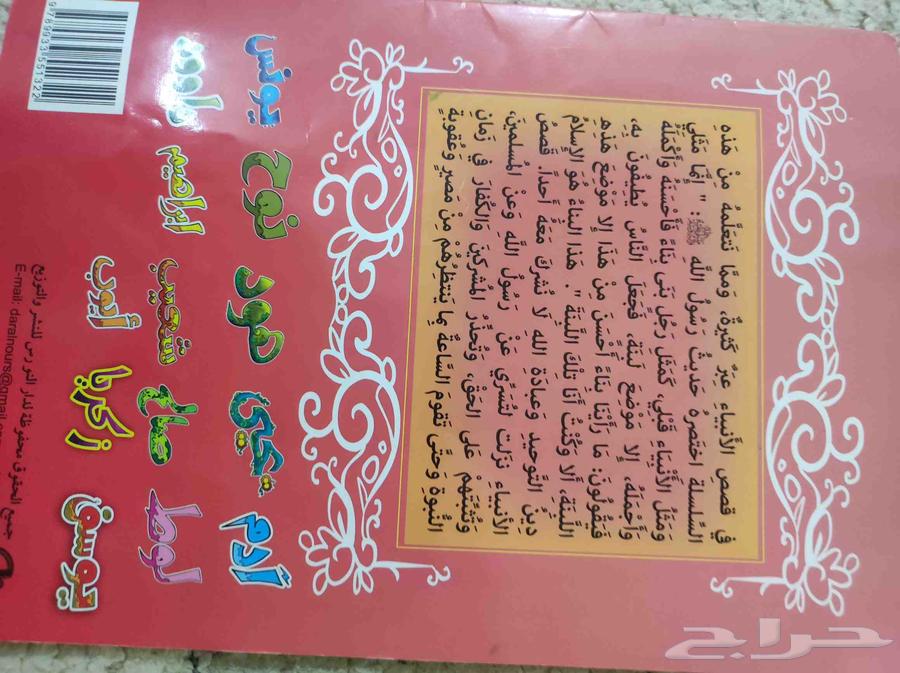 في قصصِ الأنبياءِ عِبَرٌ كثيرةٌ، وممَّا نَتعَلَّمهُ مِنْ هَذهِ
السِّلسلة اختَصرهُ حديثُ رَسولُ اللَّهِ ﷺ: " إنَّما مَثَلي
ومَثَلُ الأنْبِياءِ قَبْلي، كَمَثَلِ رَجُلٍ بَنَى بِنَاءً فَأَحْسَنَهُ وَأَكْمَلَهُ
وَأَجْمَلَهُ، إلا مَوْضعَ لَبنَةٍ، فجَعلَ النَّاسُ يُطيفُونَ بِه،
فَيَقُولُونَ: مَا رَأَيْنَا بِنَاءً أَحْسنَ مِنْ هَذَا إلا مَوْضِعَ هَذِهِ
اللَّبِنَةِ، ألا وَكُنْتُ أَنَا تلكَ اللَّبِنَةَ ". هذا البناءُ هُوَ الإسلام
دينُ التَّوحيدِ وعبادَةِ اللهِ لا نُشركَ مَعهُ أحداً. قَصصُ
الأنبياء نَزلت لتُسَرِّي عنْ رَسولِ اللَّهِ وَعَنِ المُسلمينَ،
وتُثبّتَهُم على الحَق، وتُحذِّرُ المُشركينَ والكُفَّارَ في زَمانِ
النُّبوةِ وحتَّى تَقومَ السَّاعةُ بما يَنتظرُهُمْ مِنْ مَصيرٍ وعُقوبةٍ
آدم يحيى هود نوح يونس
لوط صالح شعيب ابراهيم داوود
يوسف زكريا أيوب
9789933551322
جميع الحقوق محفوظة لدار النورس للنشر والتوزيع
E-mail: daralnours@gmail
حراج